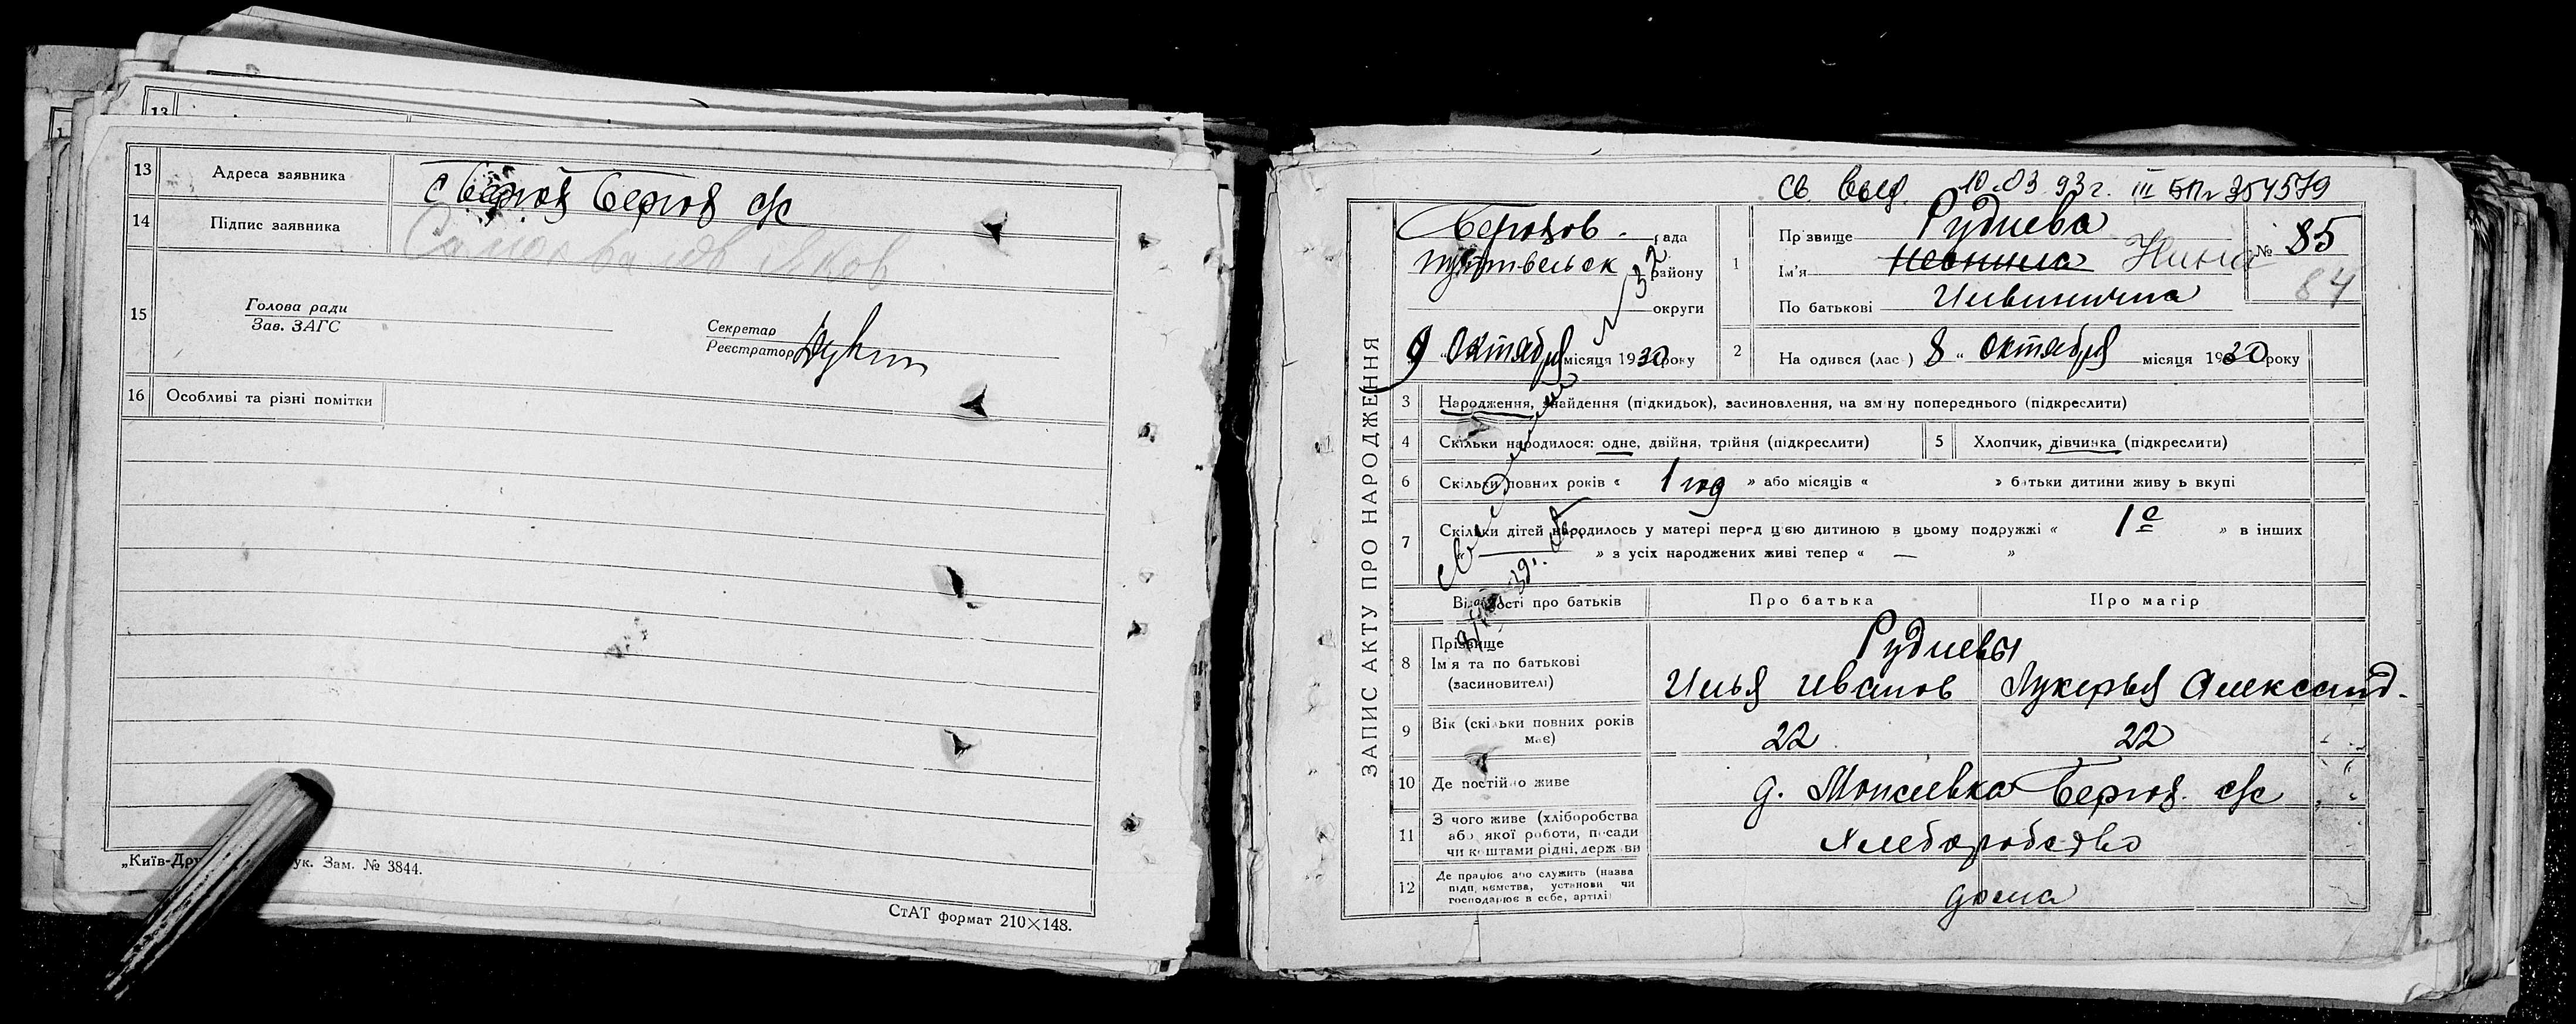 13
13 Адреса заявника с Берюх Берюх с/с
14 Підпис заявника Самохвалов Яков
15 Голова ради
Зав. ЗАГС
Секретар
Реєстратор
16 Особливі та різні помітки
„Київ-Дру ук. Зам. № 3844.
СтАТ формат 210×148.
св. выд. 10.03.93 г. III БП № 354579
ЗАПИС АКТУ ПРО НАРОДЖЕННЯ
рада
Путивльск району
округи
9 „ Октября місяця 1930 року
1 Прізвище Руднева
Ім'я Нина
По батькові Ильинична
№ 85
84
2 Народився (лас) 8 „ октября місяця 1930 року
3 Народження, знайдення (підкидьок), засиновлення, на зміну попереднього (підкреслити)
4 Скільки народилося: одне, двійня, трійня (підкреслити) 5 Хлопчик, дівчинка (підкреслити)
6 Скільки повних років « 1 год » або місяців « » батьки дитини живуть вкупі
7 Скільки дітей народилось у матері перед цією дитиною в цьому подружжі « 1е » в інших
« — » з усіх народжених живі тепер « — »
Відомості про батьків Про батька Про матір
8 Прізвище Рудневы
Ім'я та по батькові
(засновителі) Илья Иванов Лукерья Александ.
9 Вік (скільки повних років
має) 22 22
10 Де постійно живе д. Моисеевка Берюх. с/с
11 З чого живе (хліборобства
або якої роботи, посади
чи коштами рідні, держави Хлеборобство
12 Де працює або служить (назва
підприємства, установи чи
господарює в себе, артілі) дома